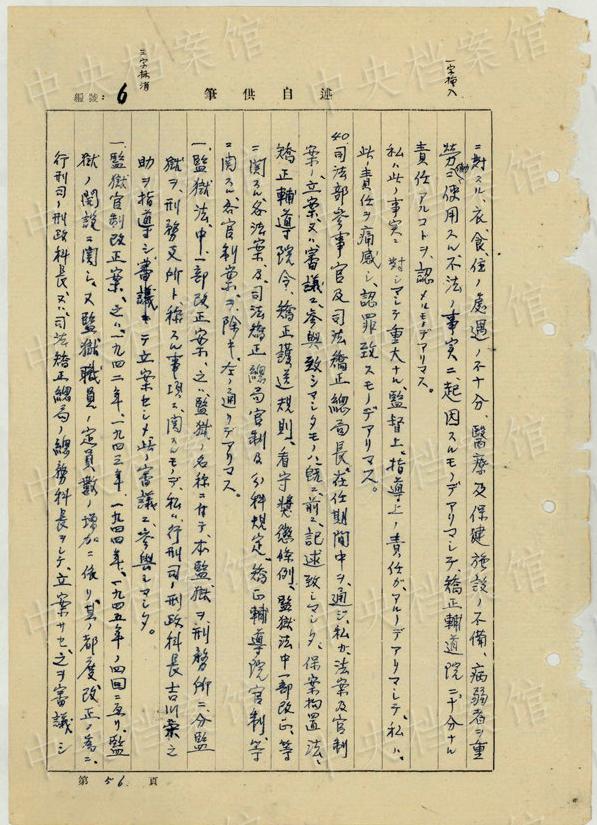 述自供筆
編號：6
一字挿入
三字抹消
ニ対スル、衣、食、住ノ処遇ノ不十分、醫療及保健施設ノ不備、病弱者ヲ重
労働ニ使用スル不法ノ事実ニ起因スルモノデアリマシテ、矯正輔導院ニ十分ナル
責任アルコトヲ認メルモノデアリマス。
私ハ此ノ事実ニ対シマシテ重大ナル監督上、指導上ノ責任ガアルノデアリマシテ、私ハ
此ノ責任ヲ痛感シ、認罪致スモノデアリマス。
40 司法部参事官及司法矯正總局長在任期間中ヲ通ジ、私ガ法案及官制
案ノ立案又ハ審議ニ参與致シマシタモノハ、既ニ前ニ記述致シマシタ、保安拘置法、
矯正輔導院令、矯正護送規則、看守奨懲條例、監獄法中一部改正、等
ニ関スル各法案、及司法矯正總局官制及分科規定、矯正輔導院官制、等
ニ関スル各官制案ヲ除キ、左ノ通リデアリマス。
一、監獄法中一部改正案、之ハ監獄ノ名称ニ付テ本監獄ヲ刑務所ニ、分監
獄ヲ刑務支所ト称スル事項ニ関スルモノデ、私ハ行刑司ノ刑政科長吉川案之
助ヲ指導シ、審議シテ立案セシメ此ノ審議ニ参與シマシタ。
一、監獄官制改正案、之ハ一九四二年、一九四三年、一九四四年、一九四五年ノ四回ニ亙リ、監
獄ノ開設ニ関シ、又監獄職員ノ定員數ノ増加ニ依リ其ノ都度改正ノ為ニ、
行刑司ノ刑政科長又ハ司法矯正總局ノ總務科長ヲシテ、立案サセ、之ヲ審議シ
第 56 頁
中央档案馆